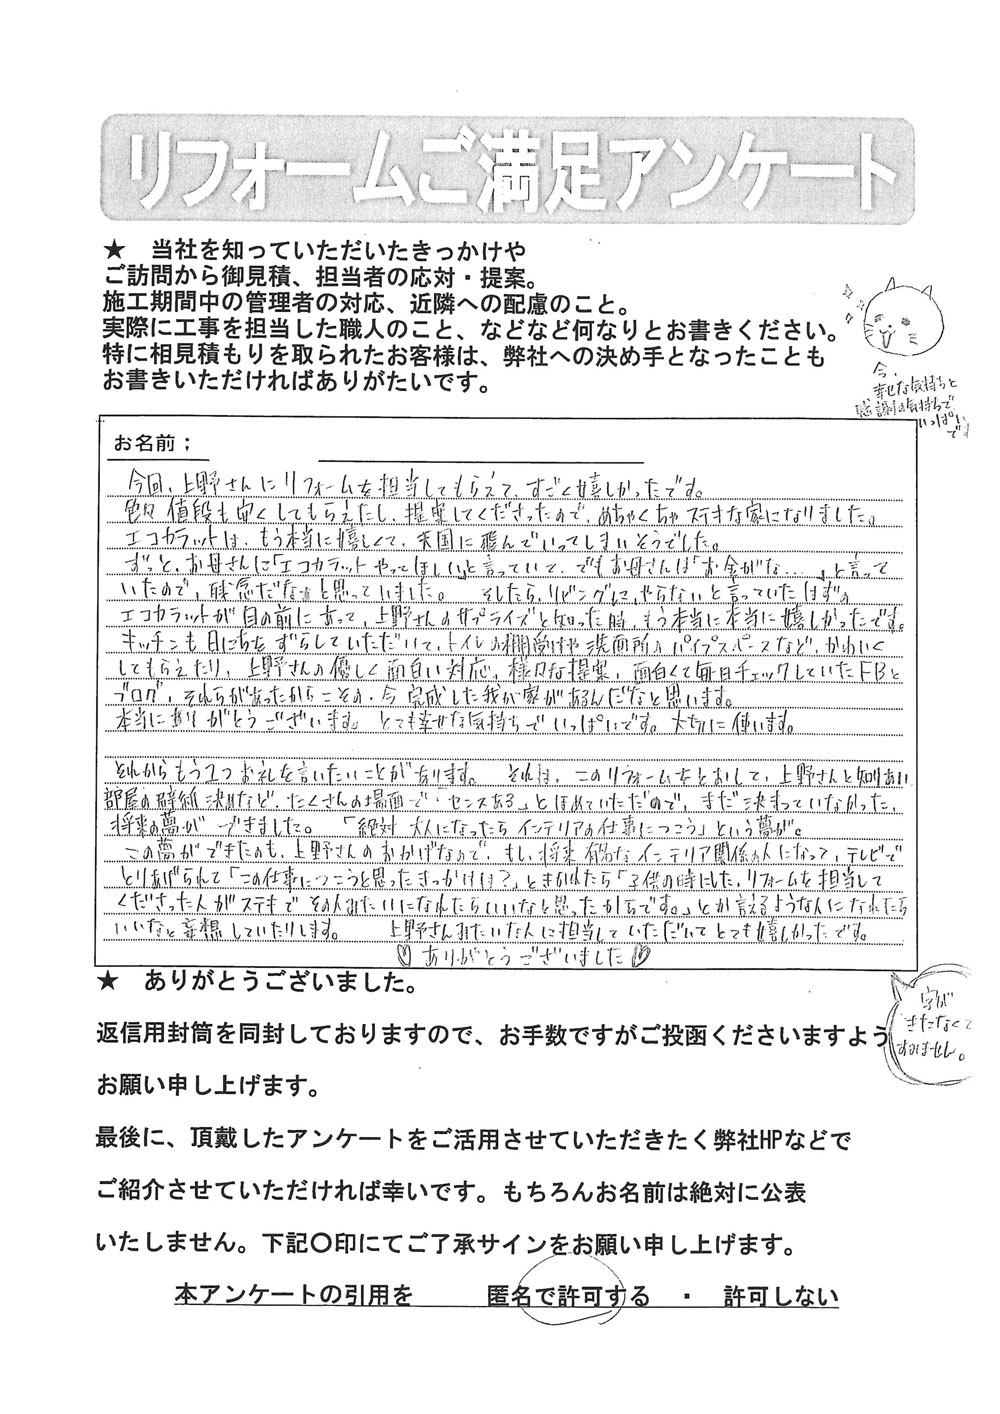 リフォームご満足アンケート
★　当社を知っていただいたきっかけや
ご訪問から御見積、担当者の応対・提案。
施工期間中の管理者の対応、近隣への配慮のこと。
実際に工事を担当した職人のこと、などなど何なりとお書きください。
特に相見積もりを取られたお客様は、弊社への決め手となったことも
お書きいただければありがたいです。
今、
幸せな気持ちと
感謝の気持ちで
いっぱい
です
お名前；
今回、上野さんにリフォームを担当してもらえて、すごく嬉しかったです。
色々値段も安くしてもらえたし、提案してくださったので、めちゃくちゃステキな家になりました。
エコカラットは、もう本当に嬉しくて、天国に飛んでいってしまいそうでした。
ずっと、お母さんに「エコカラットやってほしい」と言っていて、でもお母さんは「お金がな…」と言って
いたので、残念だなぁと思っていました。　そしたら、リビングに、やらないと言っていたはずの
エコカラットが目の前にあって、上野さんのサプライズと知った時、もう本当に本当に嬉しかったです。
キッチンも日にちをずらしていただいて、トイレの棚受けや洗面所のパイプスペースなど、かわいく
してもらえたり、上野さんの優しく面白い対応、様々な提案、面白くて毎日チェックしていたFBと
ブログ、それらがあったからこその、今完成した我が家があるんだなと思います。
本当にありがとうございます。とても幸せな気持ちでいっぱいです。大切に使います。
それからもう1つお礼を言いたいことがあります。　それは、このリフォームをとおして、上野さんと知りあい
部屋の壁紙決めなど、たくさんの場面で「センスある」とほめていただので、まだ決まっていなかった、
将来の夢ができました。　「絶対大人になったらインテリアの仕事につこう」という夢が。
この夢ができたのも、上野さんのおかげなので、もし、将来有名なインテリア関係の人になって、テレビで
とりあげられて「この仕事につこうと思ったきっかけは？」ときかれたら「子供の時にした、リフォームを担当して
くださった人がステキでその人みたいになれたらいいなと思ったからです。」とか言えるような人になれたら
いいなと妄想していたりします。　上野さんみたいな人に担当していただいてとても嬉しかったです。
♡ありがとうございました♡
★　ありがとうございました。
字が
きたなくて
すみません。
返信用封筒を同封しておりますので、お手数ですがご投函くださいますよう
お願い申し上げます。
最後に、頂戴したアンケートをご活用させていただきたく弊社HPなどで
ご紹介させていただければ幸いです。もちろんお名前は絶対に公表
いたしません。下記〇印にてご了承サインをお願い申し上げます。
本アンケートの引用を　　匿名で許可する　・　許可しない